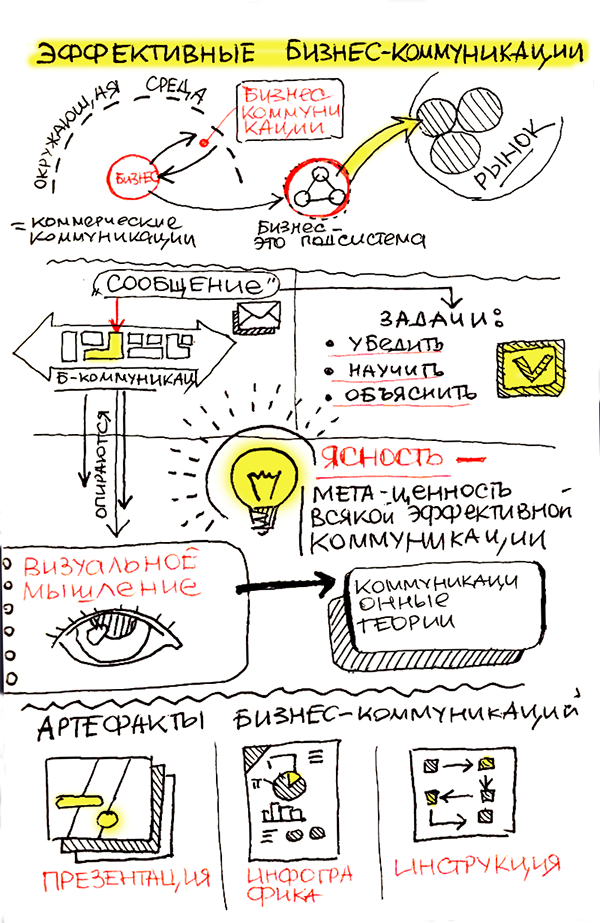 ЭФФЕКТИВНЫЕ БИЗНЕС-КОММУНИКАЦИИ
ОКРУЖАЮЩАЯ СРЕДА
БИЗНЕС-
КОММУНИ
КАЦИИ
БИЗНЕС
РЫНОК
= КОММЕРЧЕСКИЕ
КОММУНИКАЦИИ
БИЗНЕС-
ЭТО ПОДСИСТЕМА
„СООБЩЕНИЕ"
Б-КОММУНИКАЦ
ЗАДАЧИ:
• УБЕДИТЬ
• НАУЧИТЬ
• ОБЪЯСНИТЬ
ОПИРАЮТСЯ
ЯСНОСТЬ —
МЕТА-ЦЕННОСТЬ
ВСЯКОЙ ЭФФЕКТИВНОЙ
КОММУНИКАЦИИ
ВИЗУАЛЬНОЕ
МЫШЛЕНИЕ
КОММУНИКАЦИ
ОННЫЕ
ТЕОРИИ
АРТЕФАКТЫ БИЗНЕС-КОММУНИКАЦИЙ
ПРЕЗЕНТАЦИЯ
ИНФОГРА
ФИКА
ИНСТРУКЦИЯ